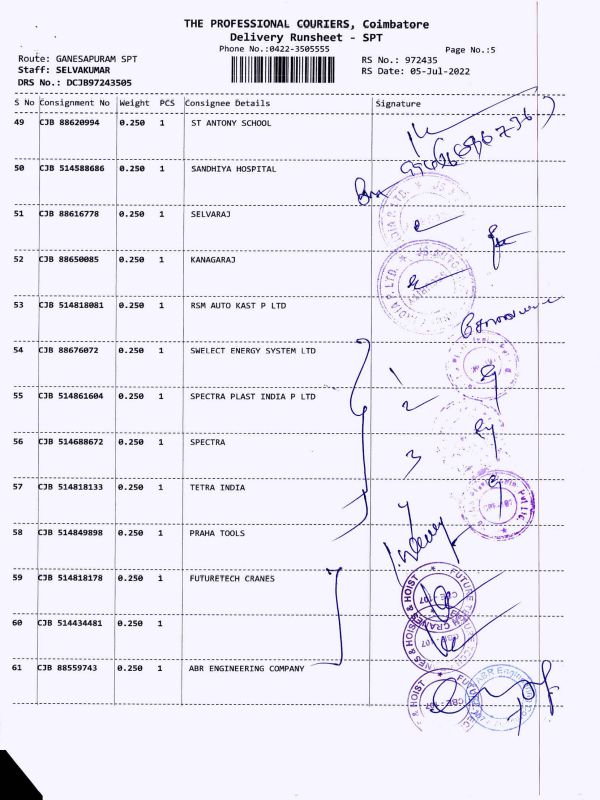 THE PROFESSIONAL COURIERS, Coimbatore
Delivery Runsheet - SPT
Phone No.:0422-3505555
Page No.:5
Route: GANESAPURAM SPT
RS No.: 972435
Staff: SELVAKUMAR
RS Date: 05-Jul-2022
DRS No.: DCJB97243505
S No Consignment No Weight PCS Consignee Details Signature
49 CJB 88620994 0.250 1 ST ANTONY SCHOOL
50 CJB 514588686 0.250 1 SANDHIYA HOSPITAL
51 CJB 88616778 0.250 1 SELVARAJ
52 CJB 88650085 0.250 1 KANAGARAJ
53 CJB 514818081 0.250 1 RSM AUTO KAST P LTD
54 CJB 88676072 0.250 1 SWELECT ENERGY SYSTEM LTD
1
55 CJB 514861604 0.250 1 SPECTRA PLAST INDIA P LTD
2
56 CJB 514688672 0.250 1 SPECTRA
3
57 CJB 514818133 0.250 1 TETRA INDIA
4
58 CJB 514849898 0.250 1 PRAHA TOOLS
59 CJB 514818178 0.250 1 FUTURETECH CRANES
60 CJB 514434481 0.250 1
61 CJB 88559743 0.250 1 ABR ENGINEERING COMPANY